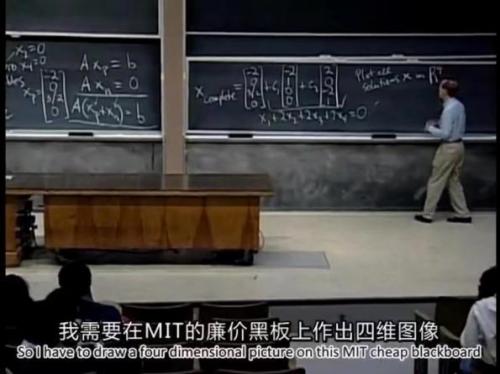 x₂=0
x₄=0
A xₚ = b
A xₙ = 0
A(xₚ+xₙ)=b
xₚ=
-2
0
3/2
0
x complete = [-2 0 3/2 0] + c₁ [-2 1 0 0] + c₂ [2 0 -2 1]
Plot all
solutions x in R⁴
我需要在MIT的廉价黑板上作出四维图像
So I have to draw a four dimensional picture on this MIT cheap blackboard